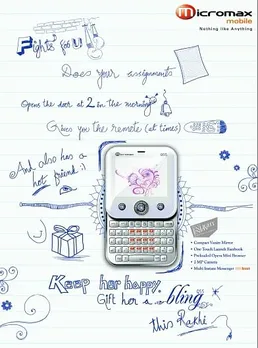 Micromax
mobile
Nothing like Anything
Fights for U
Does your assignments
Opens the door at 2 in the morning
Gives you the remote (at times)
And also has a
hot friend :)
• Compact Vanity Mirror
• One Touch Launch Facebook
• Preloaded Opera Mini Browser
• 2 MP Camera
• Multi Instant Messenger
Keep her happy.
Gift her a bling
this Rakhi